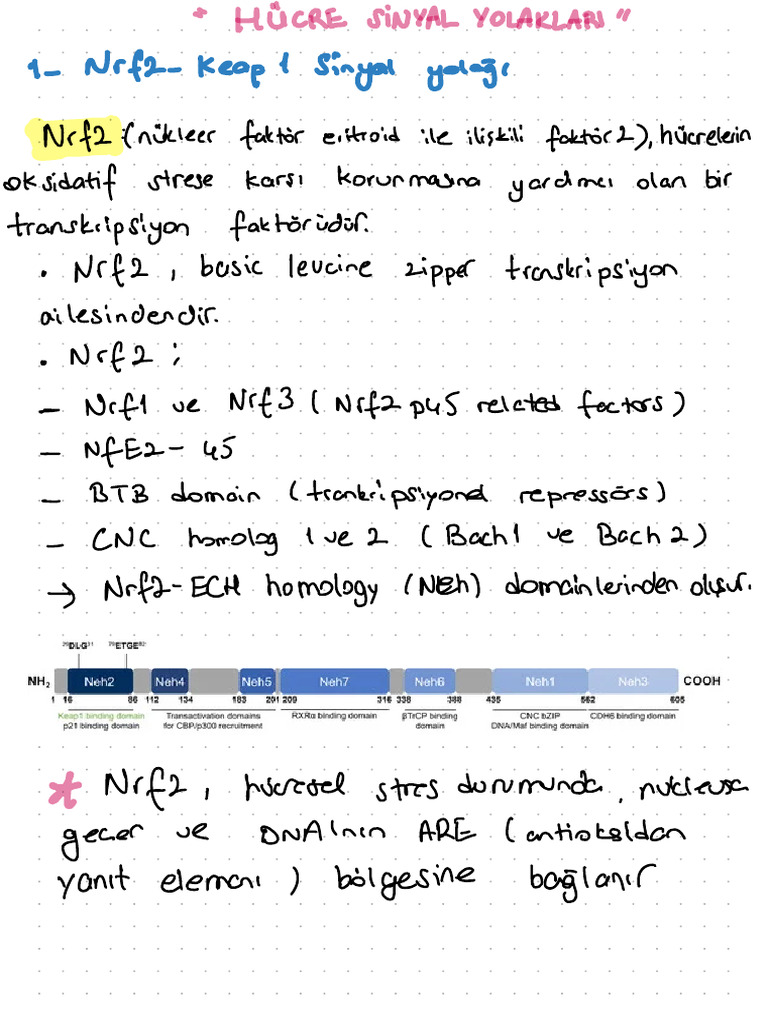 " HÜCRE SİNYAL YOLAKLARI "
1- Nrf2-Keap 1 Sinyal yolağı
Nrf2 (nükleer faktör eritroid ile ilişkili faktör 2), hücrelerin
oksidatif strese karşı korunmasına yardımcı olan bir
transkripsiyon faktörüdür.
. Nrf2, basic leucine zipper transkripsiyon
ailesindendir.
. Nrf2 ;
- Nrf1 ve Nrf3 ( Nrf2 p45 related factors )
- NfE2-45
- BTB domain (trankripsiyonel repressörs)
- CNC homolog 1 ve 2 ( Bach1 ve Bach 2 )
→ Nrf2-ECH homology (NEh) domainlerinden oluşur.
²⁹DLG³¹ ⁷⁹ETGE⁸²
NH₂ Neh2 Neh4 Neh5 Neh7 Neh6 Neh1 Neh3 COOH
1 16 86 112 134 183 201 209 316 338 388 435 562 605
Keap1 binding domain Transactivation domains RXRα binding domain βTrCP binding CNC bZIP CDH6 binding domain
p21 binding domain for CBP/p300 recruitment domain DNA/Maf binding domain
* Nrf2, hücresel stres durumunda, nucleusa
geçer ve DNA'nın ARE (antioksidan
yanıt elemanı ) bölgesine bağlanır